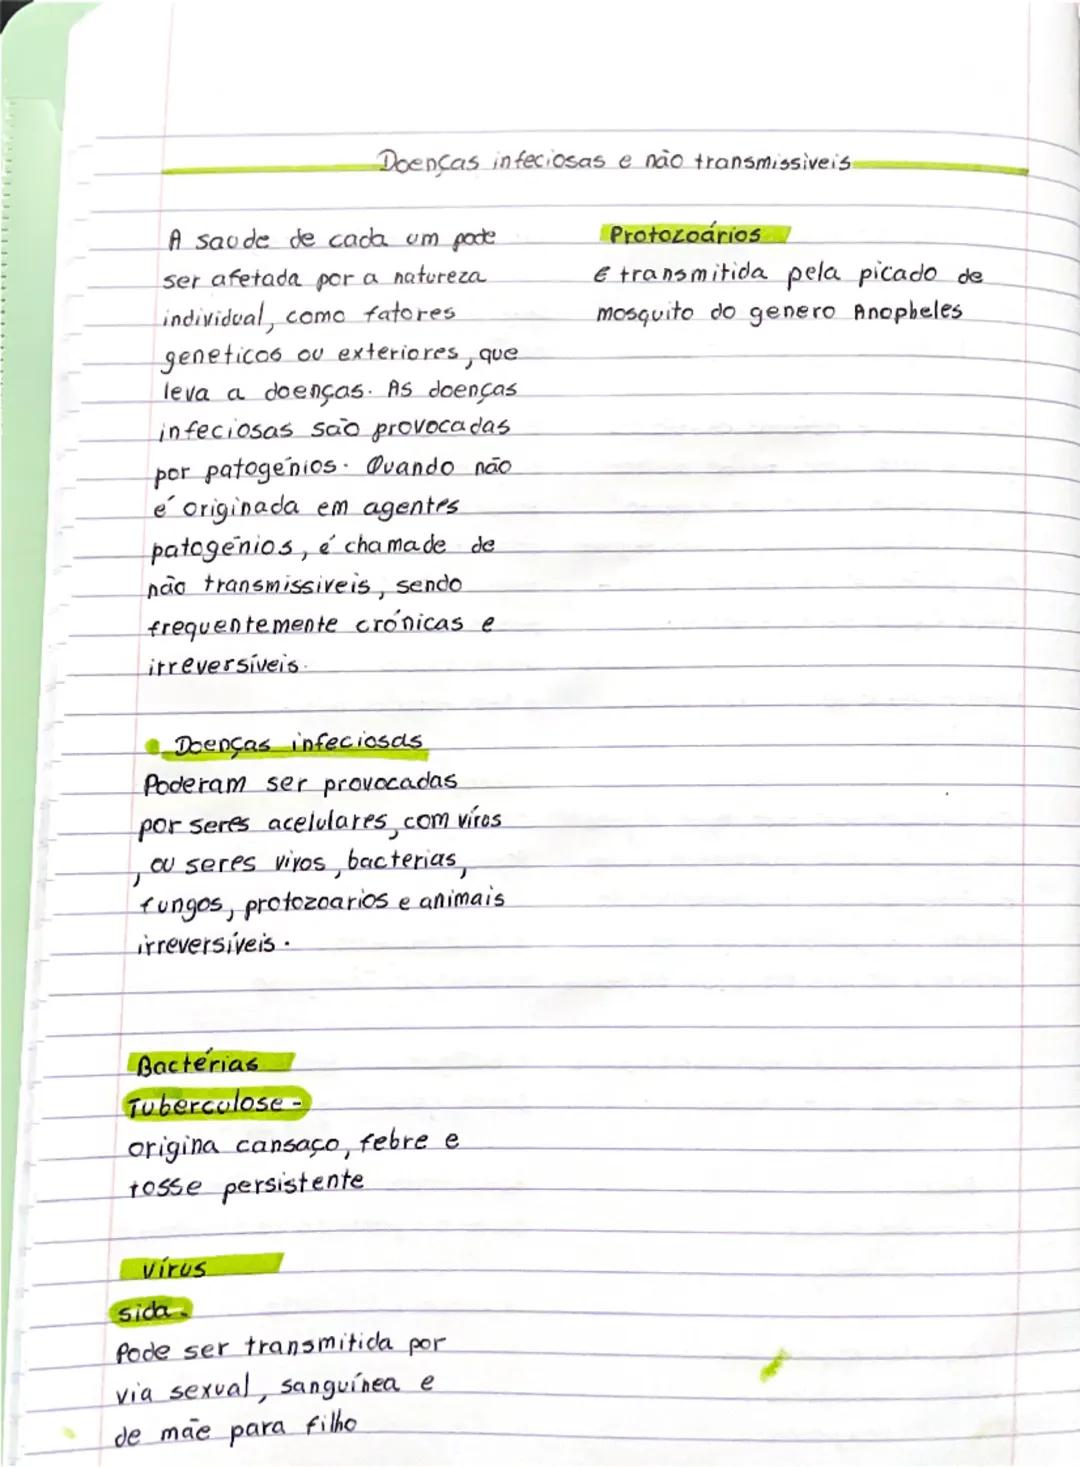 Doenças infeciosas e não transmissiveis
A saude de cada um pode
ser afetada por a natureza
individual, como fatores
geneticos ou exteriores, que
leva a doenças. As doenças
infeciosas são provocadas
por patogénios. Quando não
é originada em agentes
patogénios, é chamade de
não transmissiveis, sendo
frequentemente crónicas e
irreversíveis.
Doenças infeciosas
Poderam ser provocadas
por seres acelulares, com vírus
, ou seres vivos, bacterias,
fungos, protozoarios e animais
irreversíveis.
Bactérias
Tuberculose -
origina cansaço, febre e
tosse persistente
vírus
sida -
Pode ser transmitida por
via sexual, sanguínea e
de mãe para filho
Protozoários
é transmitida pela picado de
mosquito do genero Anopheles